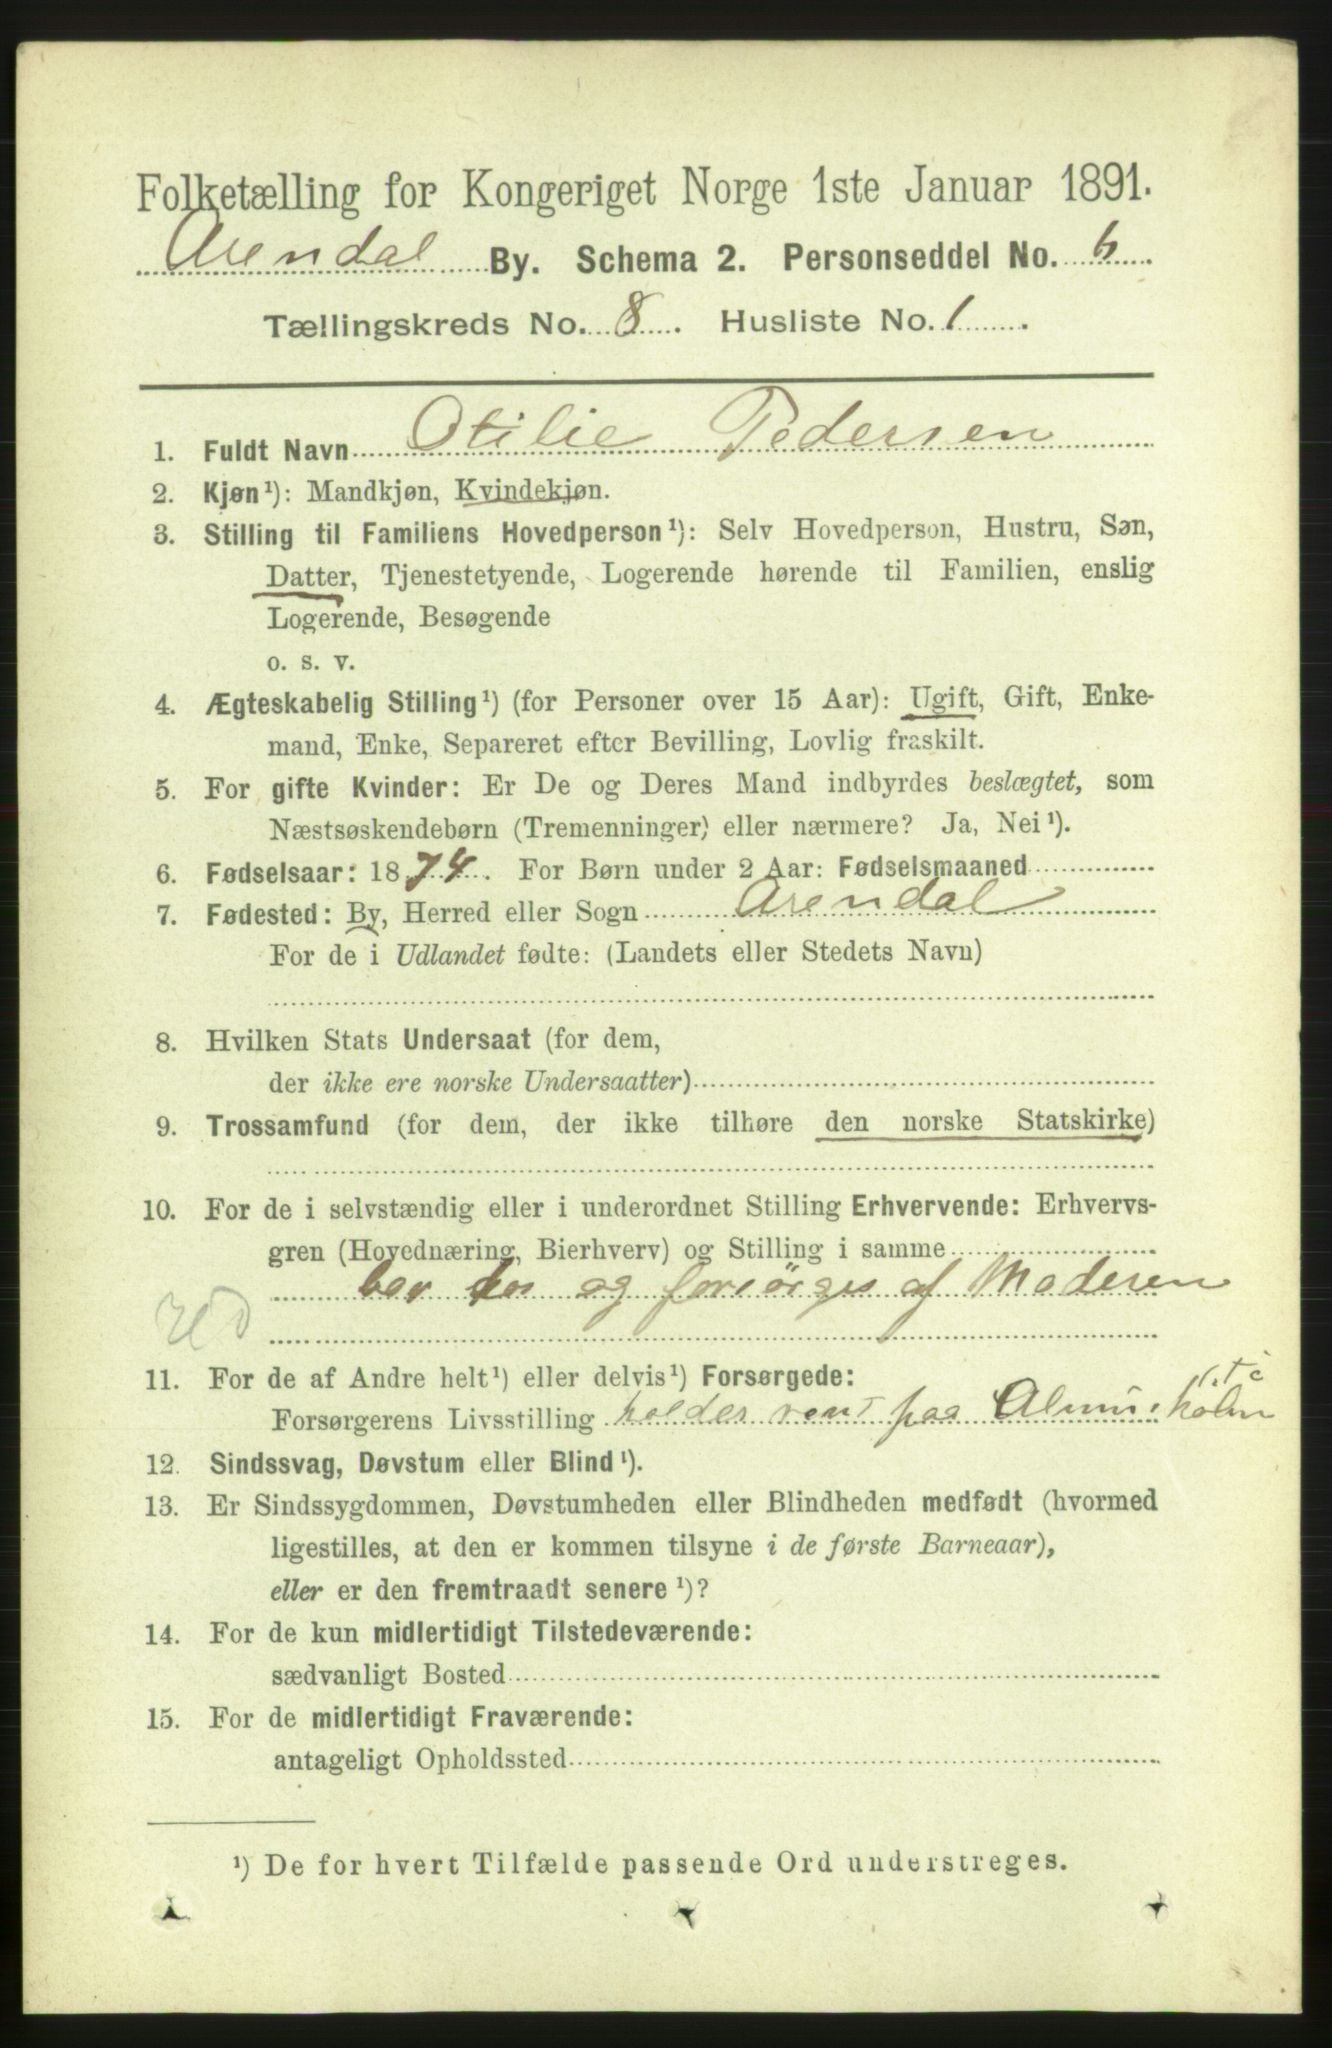 Folketælling for Kongeriget Norge 1ste Januar 1891.
Arendal By. Schema 2. Personseddel No. 6
Tællingskreds No. 8. Husliste No. 1.
1. Fuldt Navn Otilie Pedersen
2. Kjøn¹): Mandkjøn, Kvindekjøn.
3. Stilling til Familiens Hovedperson¹): Selv Hovedperson, Hustru, Søn,
Datter, Tjenestetyende, Logerende hørende til Familien, enslig
Logerende, Besøgende
o. s. v.
4. Ægteskabelig Stilling¹) (for Personer over 15 Aar): Ugift, Gift, Enke-
mand, Enke, Separeret efter Bevilling, Lovlig fraskilt.
5. For gifte Kvinder: Er De og Deres Mand indbyrdes beslægtet, som
Næstsøskendebørn (Tremenninger) eller nærmere? Ja, Nei¹).
6. Fødselsaar: 1874. For Børn under 2 Aar: Fødselsmaaned
7. Fødested: By, Herred eller Sogn Arendal
For de i Udlandet fødte: (Landets eller Stedets Navn)
8. Hvilken Stats Undersaat (for dem,
der ikke ere norske Undersaatter)
9. Trossamfund (for dem, der ikke tilhøre den norske Statskirke)
10. For de i selvstændig eller i underordnet Stilling Erhvervende: Erhvervs-
gren (Hovednæring, Bierhverv) og Stilling i samme
bor hos og forsørges af Moderen
11. For de af Andre helt¹) eller delvis¹) Forsørgede:
Forsørgerens Livsstilling holder rent paa
12. Sindssvag, Døvstum eller Blind¹).
13. Er Sindssygdommen, Døvstumheden eller Blindheden medfødt (hvormed
ligestilles, at den er kommen tilsyne i de første Barneaar),
eller er den fremtraadt senere¹)?
14. For de kun midlertidigt Tilstedeværende:
sædvanligt Bosted
15. For de midlertidigt Fraværende:
antageligt Opholdssted
¹) De for hvert Tilfælde passende Ord understreges.